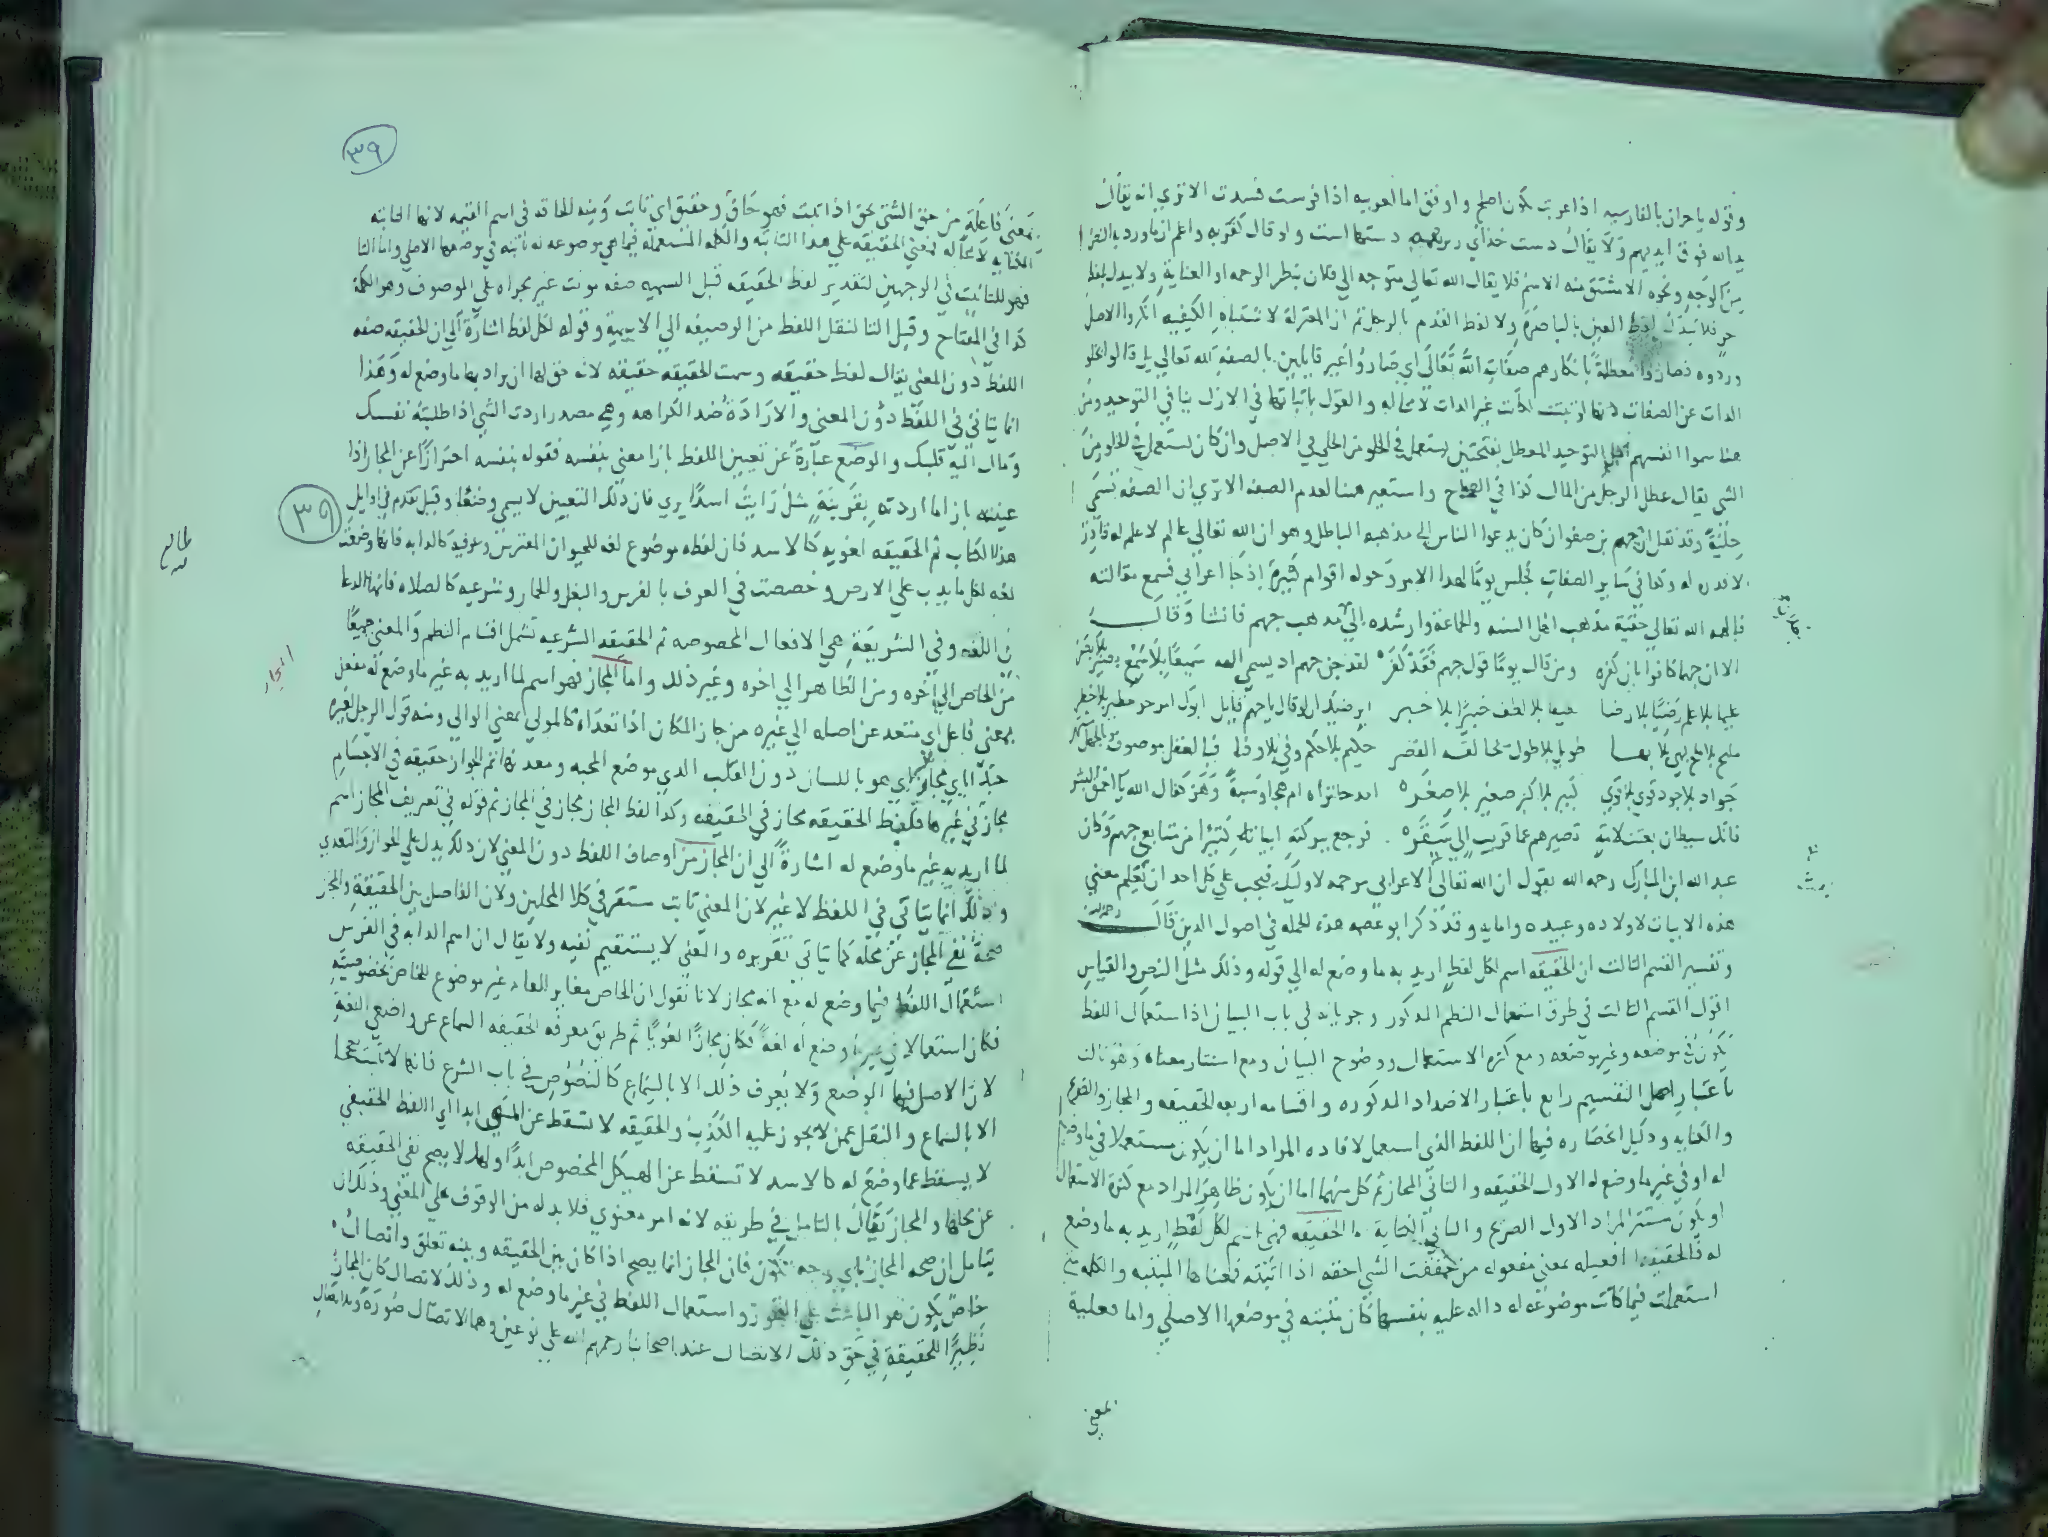 وقوله يا حران بالفارسيه اذا عربت يكون اصلح واوفق اما العربيه اذا فرست فسدت الا ترى انه يقال
يد الله فوق ايديهم ولا يقال دست خداى دستهااست واو قال كفر به واعلم ان ما ورد به
من الوجه ونحوه الا مشتق منه الاسم فلا يقال الله تعالى متوجه الى فلان بنظر الرحمه او العناية ولا يبدل بلفظ
لفظ العين بالباصرة ولا لفظ القدم بالرجل ثم ان المعتزلة لاشتباه الكيفيه انكروا الاصل
وردوه فصاروا معطلة بانكارهم صفات الله تعالى اي صاروا غير قايلين بالصفه لله تعالى بل قالوا بخلو
الذات عن الصفات لانها لو ثبتت لكانت غير الذات لا محاله والقول باثباتها في الازل ينافي التوحيد ومن
هذا سموا انفسهم اهل التوحيد المعطل بفتحتين يستعمل في الخلو من الحلي في الاصل وان كان يستعمل في الخلو من
الشي يقال عطل الرجل من المال كذا في الصحاح واستعير هنا لعدم الصفه الا ترى ان الصفه تسمى
حلية وقد نقل ان جهم بن صفوان كان يدعوا الناس الى مذهبه الباطل وهو ان الله تعالى عالم لا علم له قادر
لا قدره له وكذا في ساير الصفات فجلس يوما لهذا الامر وحوله اقوام كثيرة اذ جا اعرابي فسمع مقالته
فالهمه الله تعالى حقية مذهب اهل السنه والجماعة وارشده الى مذهب جهم فانشا وقال
الا ان جهما كافر بان كفره ومن قال يوما قول جهم فقد كفر لقد جن جهم اذ يسمي الهه سميعا بلا سمع بصيرا بلا بصر
عليما بلا علم رضيا بلا رضا لطيفا بلا لطف خبيرا بلا خبر ايرضيك ان لو قال يا جهم قايل ابوك امرو حر خطير بلا خطر
مليح بلا ملح بهي بلا بها طويل بلا طول يخالفه القصر حليم بلا حلم وفي بلا وفا فبالعقل موصوف وبالجهل مشتهر
جواد بلا جود قوي بلا قوى كبير بلا كبر صغير بلا صغر امدحا تراه ام هجا وسبة وهزءا كفاك الله يا احمق البشر
فانك شيطان بعثت لامة تصيرهم عما قريب الى سقر فرجع ببركة ابياته كثيرا من متابعي جهم وكان
عبد الله ابن المبارك رحمه الله يقول ان الله تعالى الاعرابي مرحمه لاوليك فيجب على كل احد ان تعلم معنى
هذه الابيات لاولاده وعبيده وامايه وقد ذكر ابو عصمه هذه الجمله في اصول الدين قال رحمه الله
وتفسير القسم الثالث ان الحقيقه اسم لكل لفظ اريد به ما وضع له الى قوله وذلك مثل النص والقياس
اقول القسم الثالث في طرق استعمال النظم المذكور وجريانه في باب البيان اذ استعمال اللفظ
يكون في موضعه وغير موضعه ومع كثره الاستعمال ووضوح البيان ومع استتار معناه وهو ثالث
باعتبار اصل التقسيم رابع باعتبار الاضداد المذكوره واقسامه اربعه الحقيقه والمجاز والصريح
والكنايه ودليل انحصاره فيها ان اللفظ الذي استعمل لافاده المراد اما ان يكون مستعملا في ما وضع
له او في غير ما وضع له الاول الحقيقه والثاني المجاز ثم كل منهما اما ان يكون ظاهر المراد مع كثرة الاستعمال
او يكون مستتر المراد الاول الصريح والثاني الكناية اما الحقيقه فهي اسم لكل لفظ اريد به ما وضع
له فالحقيقة اما فعيله بمعنى مفعوله من حققت الشي احقه اذا اثبته فمعناها المثبته والكلمه متى
استعملت فيما كانت موضوعه له داله عليه بنفسها كان مثبته في موضعها الاصلي واما فعلية
بمعنى
٣٩
بمعنى فاعلة من حق الشي يحق اذا ثبت فهو حاق وحقيق اي ثابت ومنه الحاقه في اسم القيمه لانها الثابته
الكاينه لا محاله فمعنى الحقيقه على هذا الثابته والكلمه المستعمله فيما هي موضوعه له ثابته في موضعها الاصلي واما التا
فهو للتانيث في الوجهين لتقدير لفظ الحقيقه قبل التسميه صفه مونث غير مجراه على الموصوف وهو الكلمة
كذا في المفتاح وقيل التا لنقل اللفظ من الوصفيه الى الاسمية وقوله لكل لفظ اشارة الى ان الحقيقه صفه
اللفظ دون المعنى يقال لفظ حقيقه وسمت الحقيقه حقيقه لانه حق لها ان يراد بها ما وضع له وهذا
انما يتاتى في اللفظ دون المعنى والارادة ضد الكراهه وهي مصدر اردت الشي اذا طلبته نفسك
ومال اليه قلبك والوضع عبارة عن تعيين اللفظ بازا معنى بنفسه فقوله بنفسه احترازا عن المجاز اذا
عينته بازا ما اردته بقرينة مثل رايت اسدا يرمي فان ذلك التعيين لا يسمى وضعا وقيل تقدم في اوايل
٣٩
هذا الكتاب ثم الحقيقه لغويه كالاسد فان لفظه موضوع لغه للحيوان المفترس وعرفية كالدابه فانها وضعت
لغه لكل ما يدب على الارض وخصصت في العرف بالفرس والبغل والحمار وشرعيه كالصلاه فانها الدعا
في اللغه وفي الشريعة هي الافعال المخصوصه ثم الحقيقه الشرعيه تشمل اقسام النظم والمعنى جميعا
من الخاص الى اخره ومن الظاهر الى اخره وغير ذلك واما المجاز فهو اسم لما اريد به غير ما وضع له مفعل
بمعنى فاعل اي متعد عن اصله الى غيره من جاز المكان اذا تعداه كالمولى بمعنى الوالي ومنه قول الرجل لغيره
حبك اياي مجاز اي هو باللسان دون القلب الذي موضع المحبه ومعدنها ثم الجواز حقيقه في الاجسام
مجاز في غيرها فلفظ الحقيقه مجاز في الحقيقه وكذا لفظ المجاز مجاز في المجاز ثم قوله في تعريف المجاز اسم
لما اريد به غير ما وضع له اشارة الى ان المجاز من اوصاف اللفظ دون المعنى لان ذلك يدل على الجواز والتعدي
وذلك انما يتاتى في اللفظ لا غير لان المعنى ثابت مستقر في كلا المحلين ولان الفاصل بين الحقيقة والمجاز
صحة نفي المجاز عن محله كما يتاتى تقريره والمعنى لا يستقيم نفيه ولا يقال ان اسم الدابه في الفرس
استعمال اللفظ فيما وضع له مع انه مجاز لانا نقول ان الخاص مغاير العام غير موضوع للخاص بخصوصيته
فكان استعمالا في غير ما وضع له لغة فكان مجازا لغويا ثم طريق معرفه الحقيقه السماع عن واضعي اللغة
لان الاصل فيها الوضع ولا يعرف ذلك الا بالسماع كالنصوص في باب الشرع فانها لا تثبت حجما
الا بالسماع والنقل عمن لا يجوز عليه الكذب والحقيقه لا تسقط عن المسمى ابدا اي اللفظ الحقيقي
لا يسقط عما وضع له كالاسد لا تسقط عن الهيكل المخصوص ابدا ولهذا لا يصح نفي الحقيقه
عن محالها والمجاز يقال بالتامل في طريقه لانه امر معنوي فلا بد له من الوقوف على المعنى وذلك ان
يتامل ان صحه المجاز باي وجه تكون فان المجاز انما يصح اذا كان بين الحقيقه وبينه تعلق واتصال
خاص يكون هو الباعث على التجوز واستعمال اللفظ في غير ما وضع له وذلك لاتصال كان المجاز
نظيرا للحقيقة في حق ذلك الاتصال عند اصحابنا رحمهم الله على نوعين وهما الاتصال صورة
المجاز